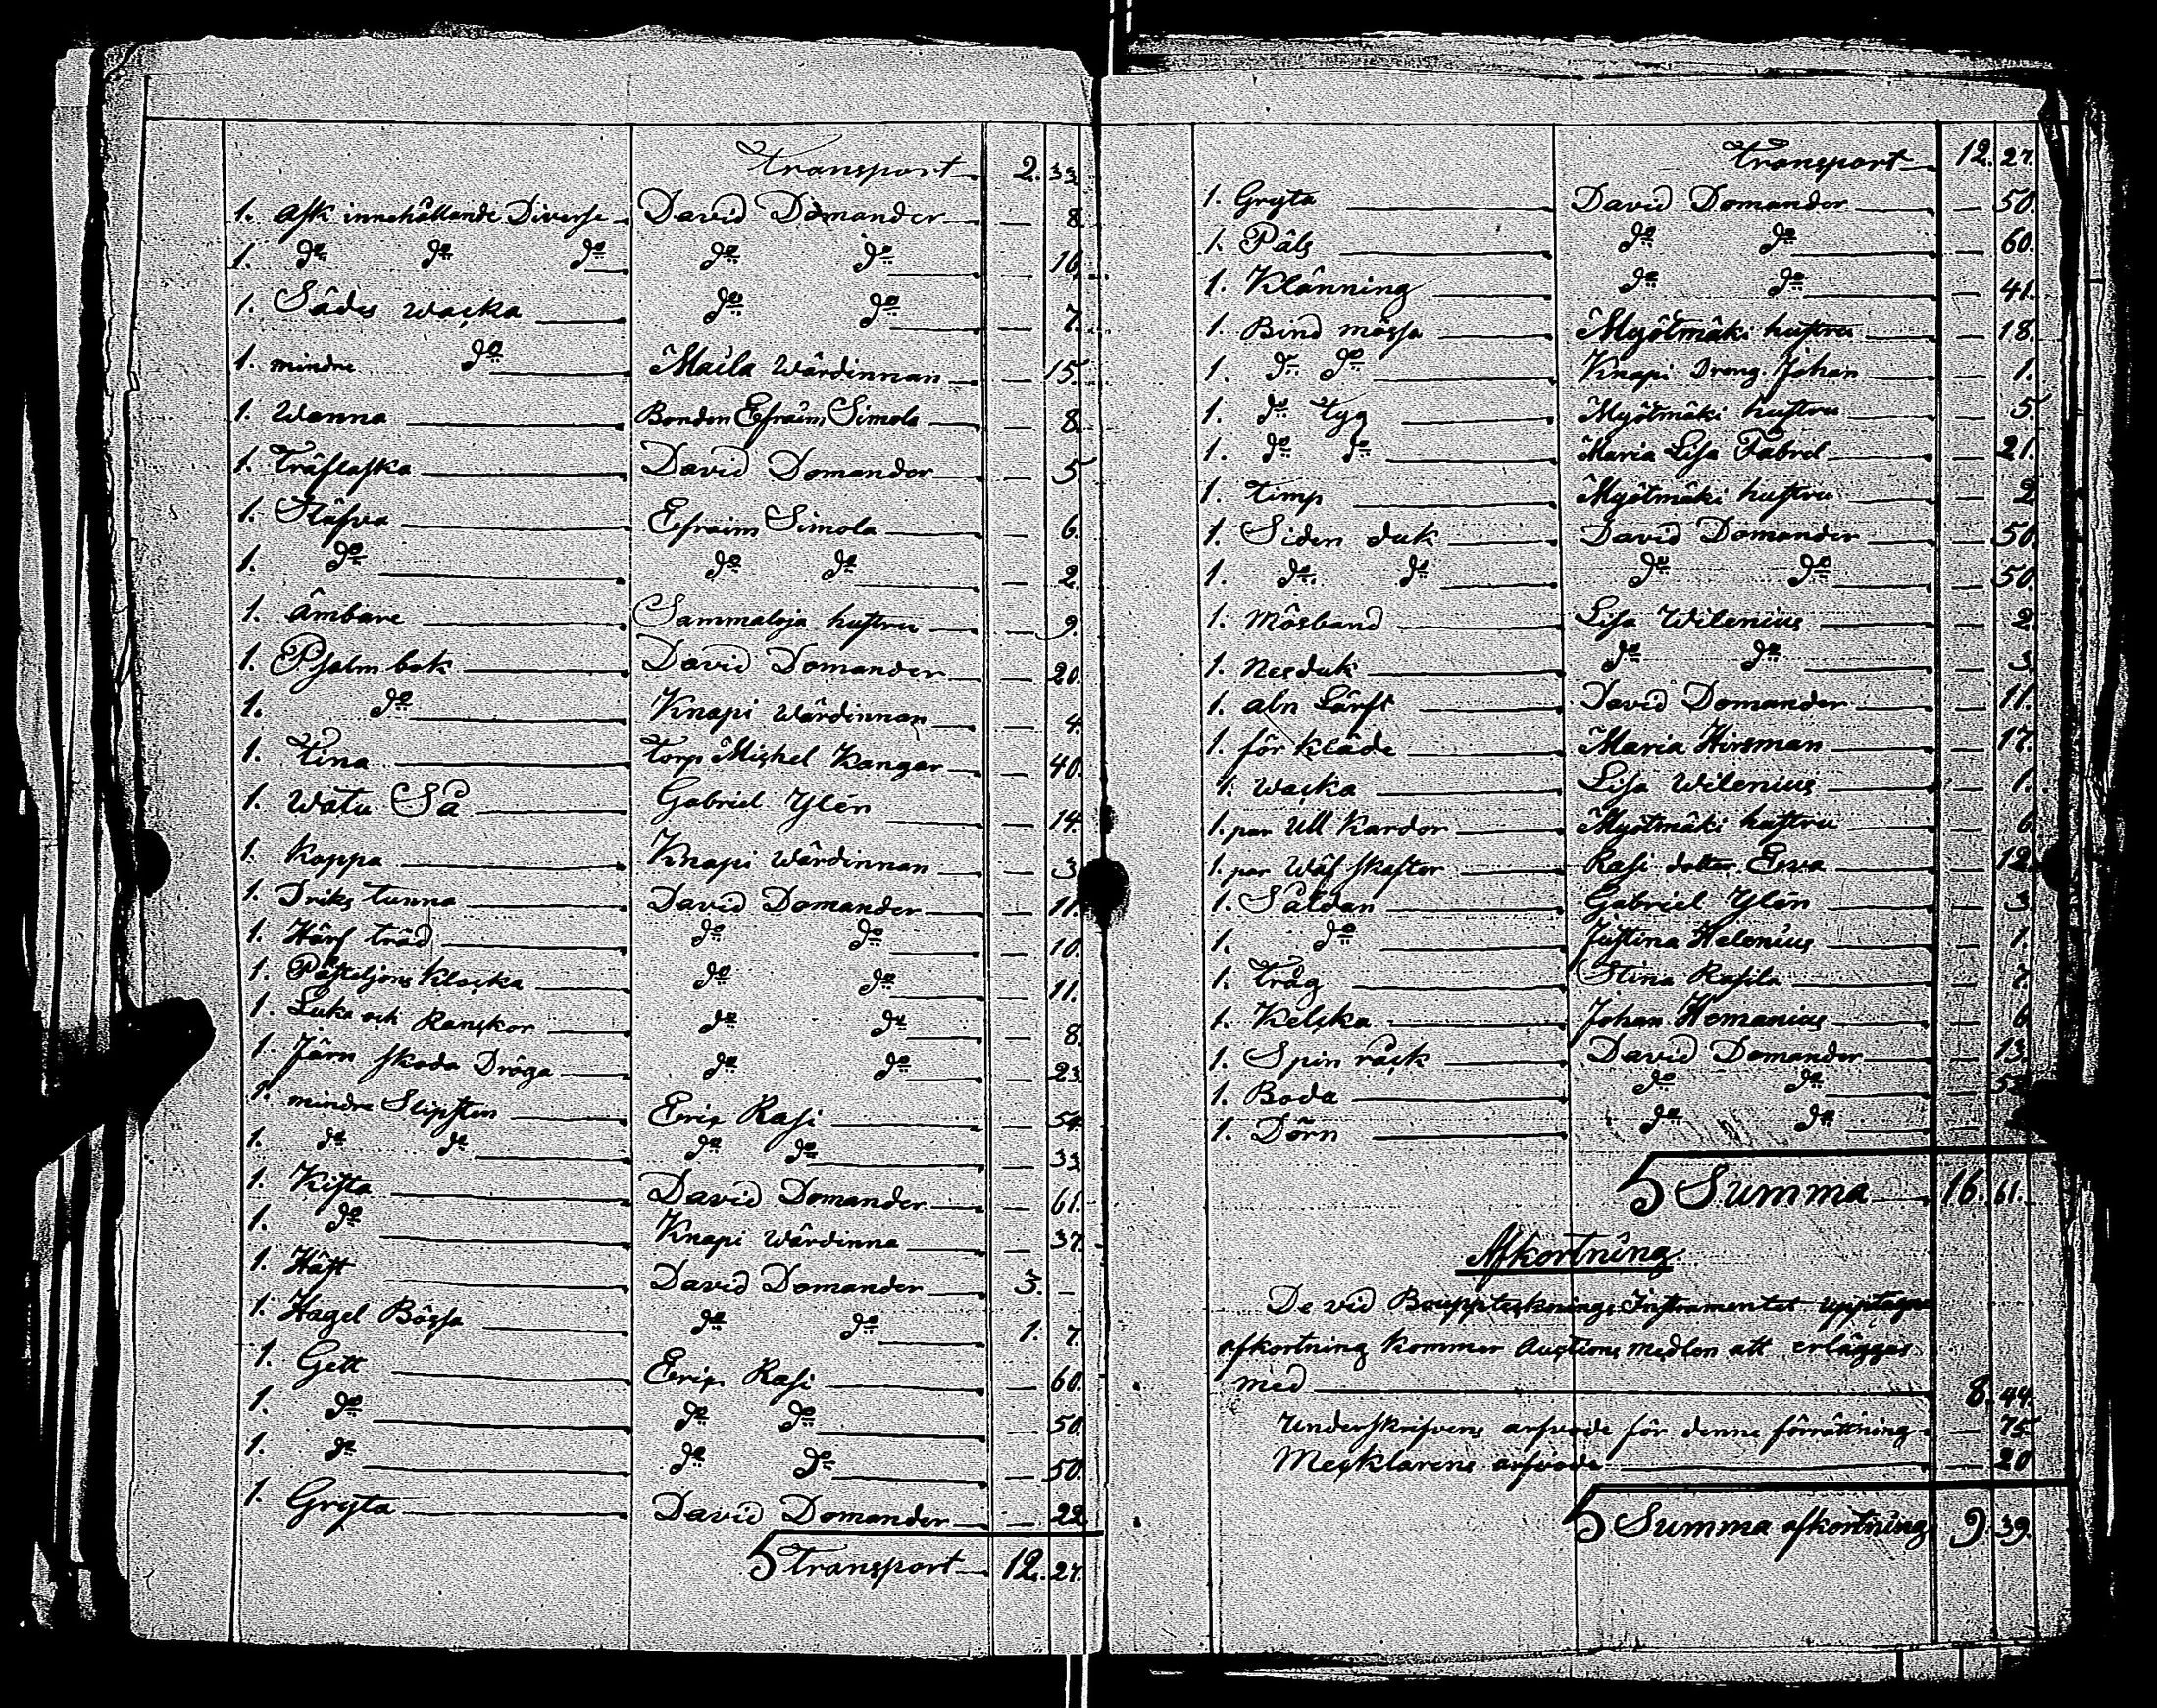 Transport 2. 33.
1. Ask innehållande Diverse David Domander — 8.
1. do do do do do — 16.
1. Sädes wacka do do — 7.
1. mindre do Maila Wärdinnan — 15.
1. Wanna Bonden Efraim Simola — 8.
1. Träflaska David Domander — 5.
1. Stäfva Efraim Simola — 6.
1. do do do — 2.
1. Ämbare Sammaloja hustru — 9.
1. Psalm bok David Domander — 20.
1. do Knapi Wärdinnan — 4.
1. Tina Torp Mickel Kangar — 40.
1. Watu Så Gabriel Ylén — 14.
1. Kappa Knapi Wärdinnan — 3.
1. Driks tunna David Domander — 11.
1. Härf träd do do — 10.
1. Påsteljons Klocka do do — 11.
1. Luka och Ranckor do do — 8.
1. Järn skoda Dröga do do — 23.
1. mindre Slipsten Eric Rasi — 54.
1. do do do do — 33.
1. Kista David Domander — 61.
1. do Knapi Wärdinna — 37.
1. Häst David Domander 3. —
1. Hagel Bössa do do 1. 7.
1. Gett Eric Rasi — 60.
1. do do do — 50.
1. do do do — 50.
1. Gryta David Domander — 22.
Transport 12. 27.
Transport 12. 27.
1. Gryta David Domander — 50.
1. Päls do do — 60.
1. Klänning do do — 41.
1. Bind mössa Myötmäki hustru — 18.
1. do do Knapi Dreng Johan — 1.
1. do tyg Myötmäki hustru — 5.
1. do do Maria Lisa Fabrel — 21.
1. timp Myötmäki hustru — 2.
1. Siden duk David Domander — 50.
1. do do do do — 50.
1. Mösband Lisa Wilenius — 2.
1. Nesduk do do — 3.
1. aln Lärft David Domander — 11.
1. för kläde Maria Hirsman — 17.
1. Wacka Lisa Wilenius — 1.
1. par Ull Kardor Myötmäki hustru — 6.
1. par Wäf skafter Rasi dotter Ewa — 12.
1. Såldan Gabriel Ylén — 3.
1. do Justina Helenius — 1.
1. Tråg Stina Rasila — 7.
1. Kelcka Johan Hemanius — 6.
1. Spin råck David Domander — 13.
1. Boda do do
1. Dörn do do
Summa 16. 61.
Afkortning
De vid Bouppteckning Instrumentet upptagne
afkortning kommer Auctions medlen att erlägges
med 8. 44.
Underskrifvens arfvode för denne förrättning — 75.
Mecklarens arfvode — 20
Summa afkortning 9. 39.